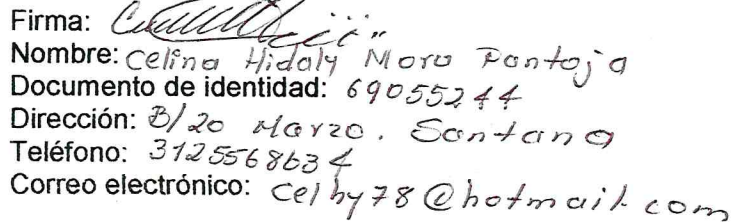 Firma:
Nombre: Celina Hidaly Moro Pantoja
Documento de identidad: 69055244
Dirección: B/20 Marzo. Santana
Teléfono: 3125568634
Correo electrónico: Celhy78@hotmail.com